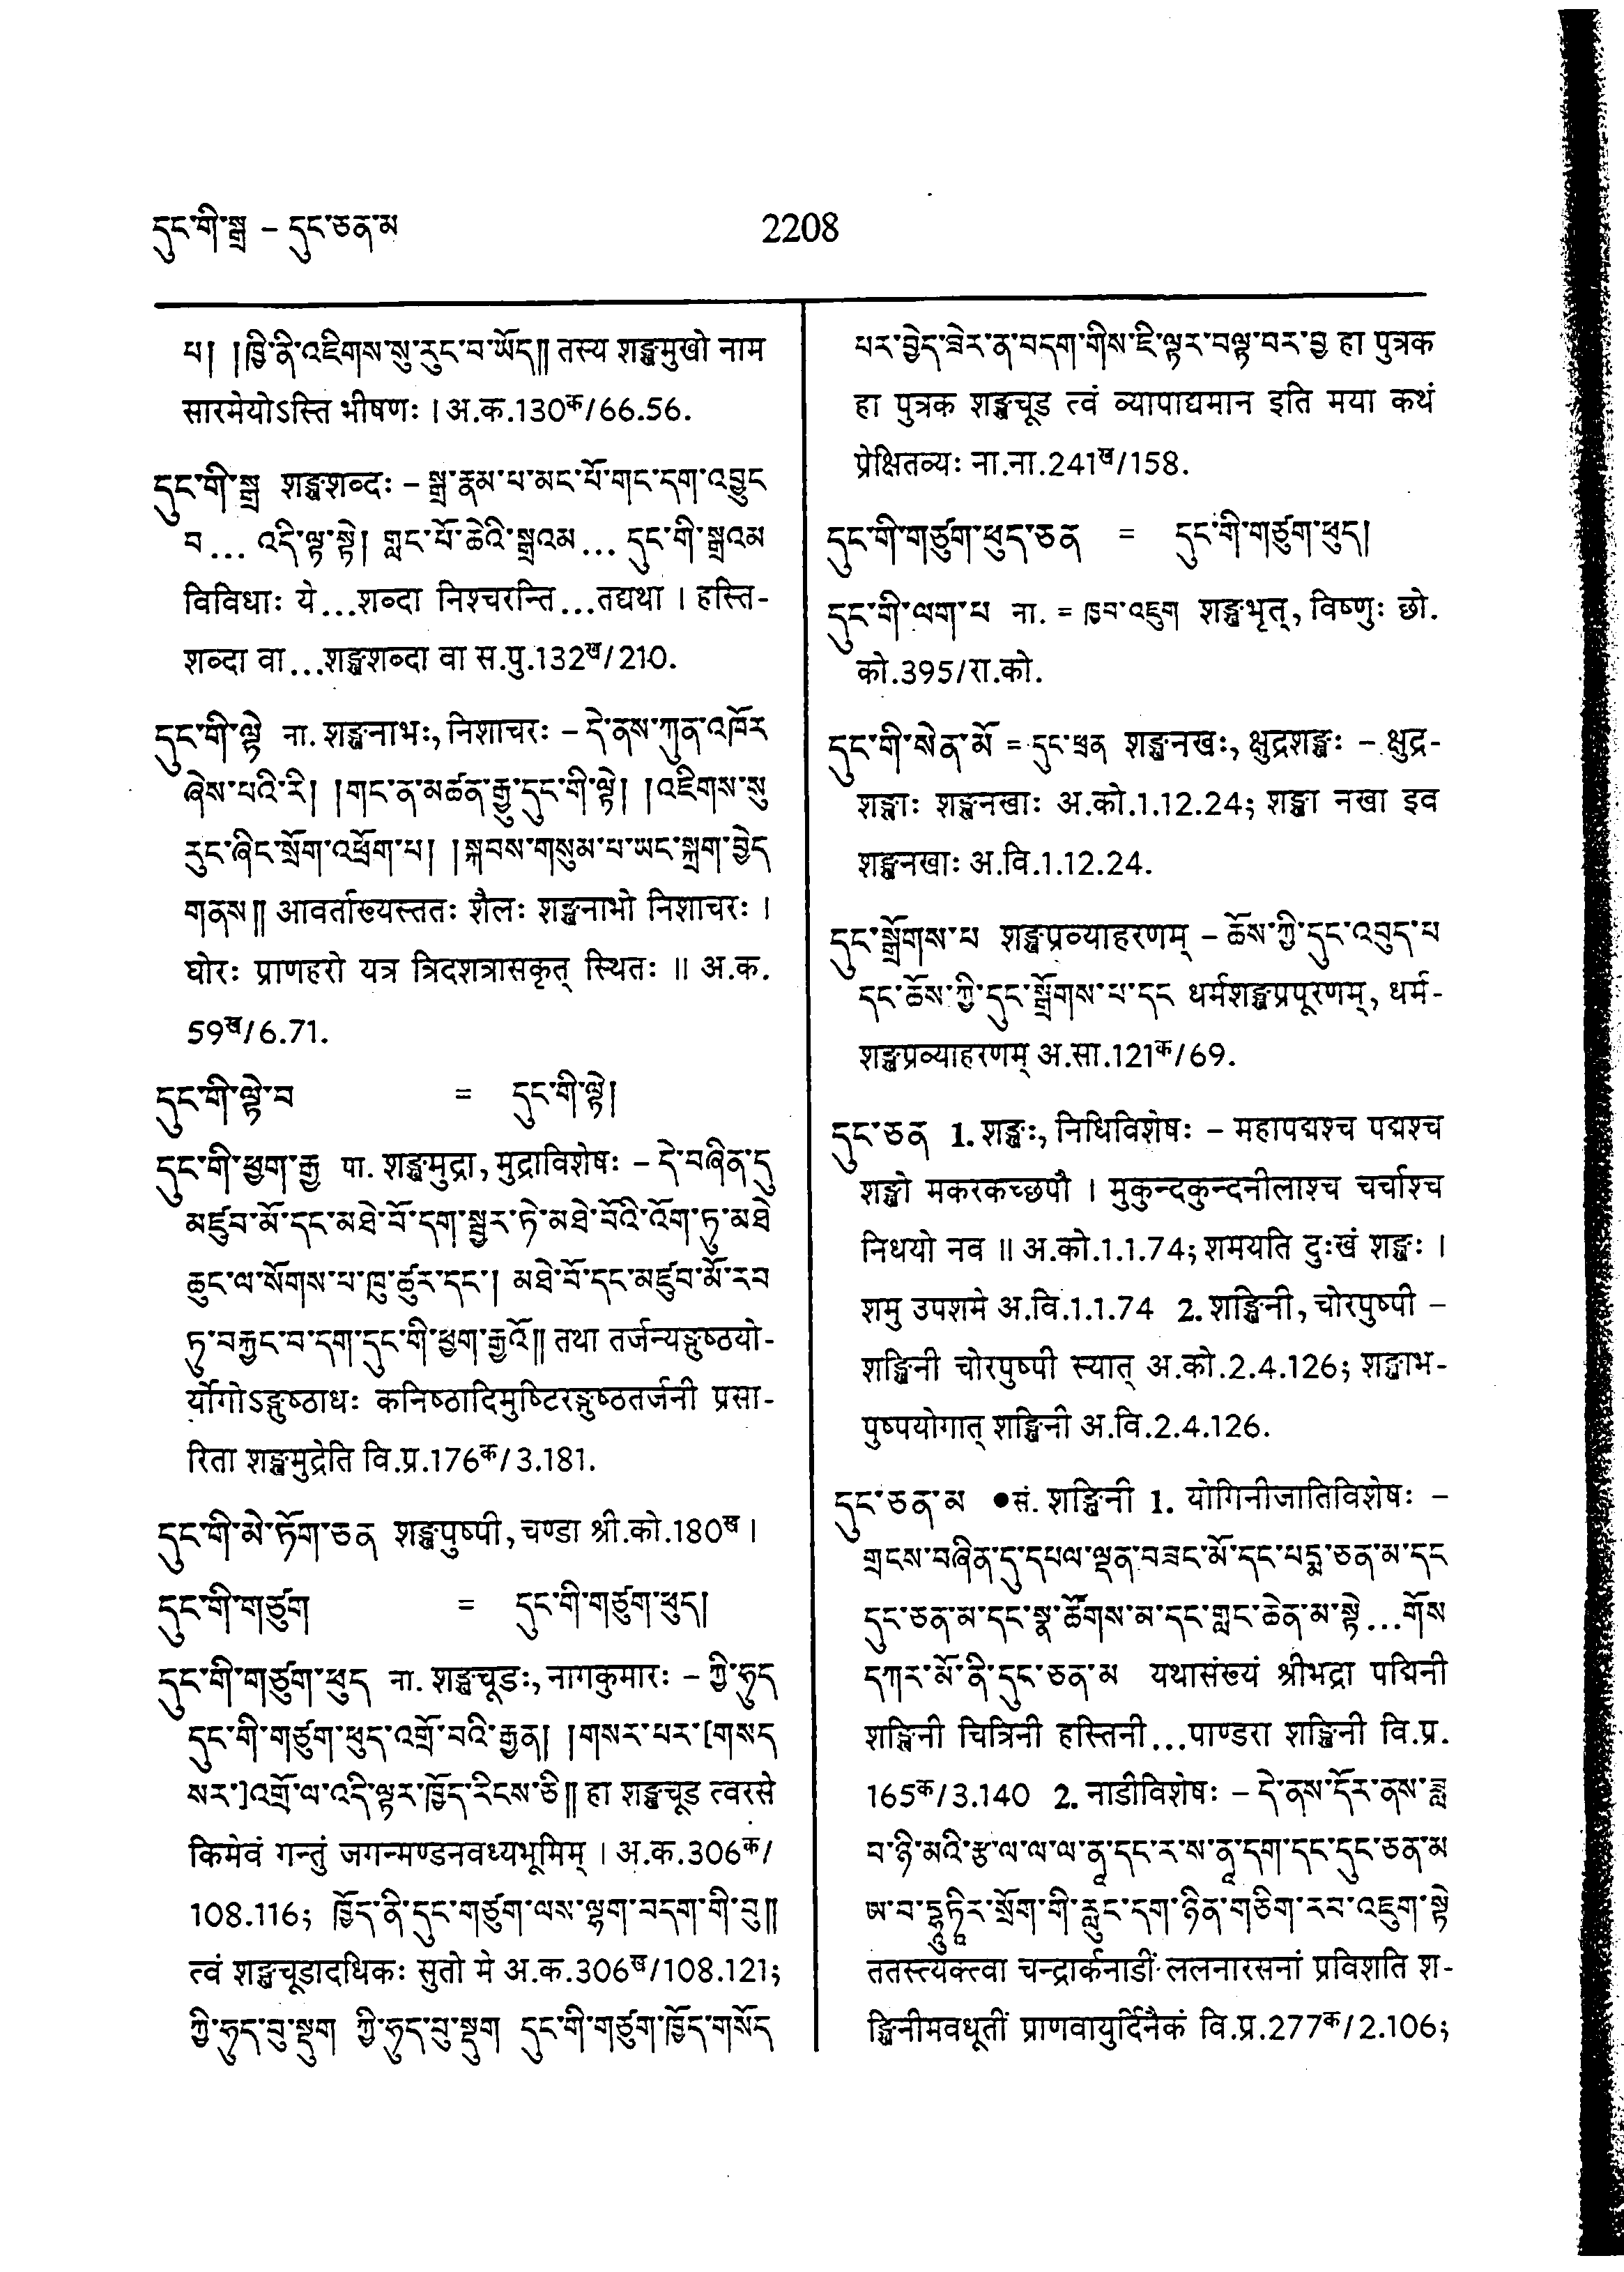 དུང་གི་སྒྲ – དུང་ཅན་མ
2208
པ། །ཁྱི་ནི་འཇིགས་སུ་རུང་བ་ཡོད༎ तस्य शङ्खमुखो नाम
सारमेयोऽस्ति भीषणः । अ.क.130क/66.56.
དུང་གི་སྒྲ शङ्खशब्दः – སྒྲ་རྣམ་པ་མང་པོ་གང་དག་འབྱུང
བ... འདི་ལྟ་སྟེ། གླང་པོ་ཆེའི་སྒྲའམ... དུང་གི་སྒྲའམ
विविधाः ये...शब्दा निश्चरन्ति...तद्यथा । हस्ति-
शब्दा वा...शङ्खशब्दा वा स.पु.132ख/210.
དུང་གི་ལྟེ ना. शङ्खनाभः, निशाचरः – དེ་ནས་ཀུན་འཁོར
ཞེས་པའི་རི། །གང་ན་མཚན་རྒྱུ་དུང་གི་ལྟེ། །འཇིགས་སུ
རུང་ཞིང་སྲོག་འཕྲོག་པ། །སྐབས་གསུམ་པ་ཡང་སྐྲག་བྱེད
གནས༎ आवर्ताख्यस्ततः शैलः शङ्खनाभो निशाचरः ।
घोरः प्राणहरो यत्र त्रिदशत्रासकृत् स्थितः ॥ अ.क.
59ख/6.71.
དུང་གི་ལྟེ་བ = དུང་གི་ལྟེ།
དུང་གི་ཕྱག་རྒྱ पा. शङ्खमुद्रा, मुद्राविशेषः – དེ་བཞིན་དུ
མཛུབ་མོ་དང་མཐེ་བོ་དག་སྦྱར་ཏེ་མཐེ་བོའི་འོག་ཏུ་མཐེ
ཆུང་ལ་སོགས་པ་ཁུ་ཚུར་དང་། མཐེ་བོ་དང་མཛུབ་མོ་རབ
ཏུ་བརྐྱང་བ་དག་དུང་གི་ཕྱག་རྒྱའོ༎ तथा तर्जन्यङ्गुष्ठयो-
र्योगोऽङ्गुष्ठाधः कनिष्ठादिमुष्टिरङ्गुष्ठतर्जनी प्रसा-
रिता शङ्खमुद्रेति वि.प्र.176क/3.181.
དུང་གི་མེ་ཏོག་ཅན शङ्खपुष्पी, चण्डा श्री.को.180ख ।
དུང་གི་གཙུག = དུང་གི་གཙུག་ཕུད།
དུང་གི་གཙུག་ཕུད ना. शङ्खचूडः, नागकुमारः – ཀྱི་ཧུད
དུང་གི་གཙུག་ཕུད་འགྲོ་བའི་རྒྱན། །གསར་པར་[གསད
སར་]འགྲོ་ལ་འདི་ལྟར་ཁྱོད་རིངས་ཅི༎ हा शङ्खचूड त्वरसे
किमेवं गन्तुं जगन्मण्डनवध्यभूमिम् । अ.क.306क/
108.116; ཁྱོད་ནི་དུང་གཙུག་ལས་ལྷག་བདག་གི་བུ༎
त्वं शङ्खचूडादधिकः सुतो मे अ.क.306ख/108.121;
ཀྱི་ཧུད་བུ་སྡུག ཀྱི་ཧུད་བུ་སྡུག དུང་གི་གཙུག་ཁྱོད་གསོད
པར་བྱེད་ཟེར་ན་བདག་གིས་ཇི་ལྟར་བལྟ་བར་བྱ हा पुत्रक
हा पुत्रक शङ्खचूड त्वं व्यापाद्यमान इति मया कथं
प्रेक्षितव्यः ना.ना.241ख/158.
དུང་གི་གཙུག་ཕུད་ཅན = དུང་གི་གཙུག་ཕུད།
དུང་གི་ལག་པ ना. = ཁྱབ་འཇུག शङ्खभृत्, विष्णुः छो.
को.395/रा.को.
དུང་གི་སེན་མོ = དུང་ཕྲན शङ्खनखः, क्षुद्रशङ्खः – क्षुद्र-
शङ्खाः शङ्खनखाः अ.को.1.12.24; शङ्खा नखा इव
शङ्खनखाः अ.वि.1.12.24.
དུང་སྒྲོགས་པ शङ्खप्रव्याहरणम् – ཆོས་ཀྱི་དུང་འབུད་པ
དང་ཆོས་ཀྱི་དུང་སྒྲོགས་པ་དང धर्मशङ्खप्रपूरणम्, धर्म-
शङ्खप्रव्याहरणम् अ.सा.121क/69.
དུང་ཅན 1. शङ्खः, निधिविशेषः – महापद्मश्च पद्मश्च
शङ्खो मकरकच्छपौ । मुकुन्दकुन्दनीलाश्च चर्चाश्च
निधयो नव ॥ अ.को.1.1.74; शमयति दुःखं शङ्खः ।
शमु उपशमे अ.वि.1.1.74 2. शङ्खिनी, चोरपुष्पी –
शङ्खिनी चोरपुष्पी स्यात् अ.को.2.4.126; शङ्खाभ-
पुष्पयोगात् शङ्खिनी अ.वि.2.4.126.
དུང་ཅན་མ ●सं. शङ्खिनी 1. योगिनीजातिविशेषः –
གྲངས་བཞིན་དུ་དཔལ་ལྡན་བཟང་མོ་དང་པདྨ་ཅན་མ་དང
དུང་ཅན་མ་དང་སྣ་ཚོགས་མ་དང་གླང་ཆེན་མ་སྟེ...གོས
དཀར་མོ་ནི་དུང་ཅན་མ यथासंख्यं श्रीभद्रा पद्मिनी
शङ्खिनी चित्रिनी हस्तिनी...पाण्डरा शङ्खिनी वि.प्र.
165क/3.140 2. नाडीविशेषः – དེ་ནས་དོར་ནས་ཟླ
བ་ཉི་མའི་རྩ་ལ་ལ་ལ་ནཱ་དང་ར་ས་ནཱ་དག་དང་དུང་ཅན་མ
ཨ་བ་དྷཱུ་ཏཱིར་སྲོག་གི་རླུང་དག་ཉིན་གཅིག་རབ་འཇུག་སྟེ
ततस्त्यक्त्वा चन्द्रार्कनाडीं ललनारसनां प्रविशति श-
ङ्खिनीमवधूतीं प्राणवायुर्दिनैकं वि.प्र.277क/2.106;